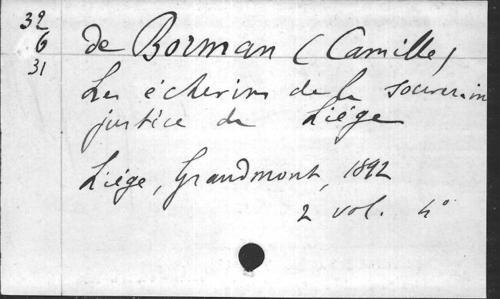 39
6
31
de Borman (Camille)
Les échevins de la souverain
justice de Liége
Liége, Grandmont, 1892
2 vol. 4°